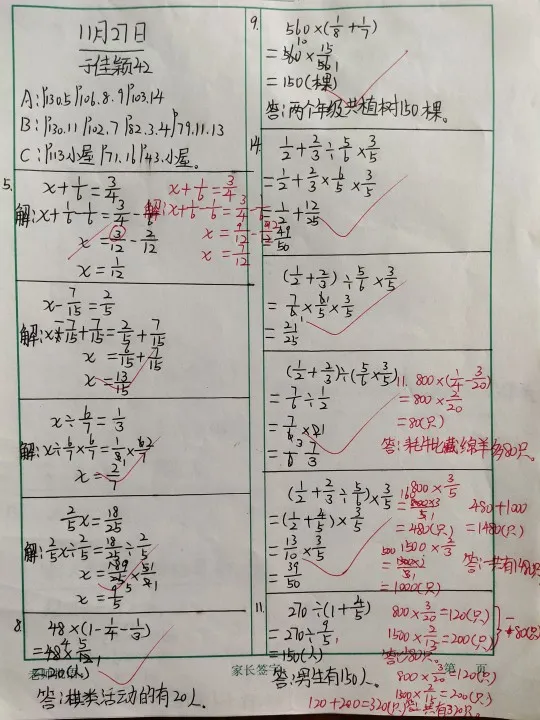 11月27日
于佳颖42
A: P130.5 P106.8.9 P103.14
B: P130.11 P102.7 P82.3.4 P79.11.13
C: P113小屋 P71.16 P43小屋。
5.
x+1/6=3/4
解:x+1/6-1/6=3/4-1/6
x=3/12-2/12
x=1/12
x+1/6=3/4
解:x+1/6-1/6=3/4-1/6
x=9/12-2/12
x=7/12
x-7/15=2/5
解:x+7/15+7/15=2/5+7/15
x=6/15+7/15
x=13/15
x÷6/7=1/3
解:x÷6/7×6/7=1/3×6/7
x=2/7
2/5x=18/25
解:2/5x÷2/5=18/25÷2/5
x=18/25×5/2
x=9/5
8.
48×(1-1/4-1/3)
=48×5/12
=20(人)
答:棋类活动的有20人。
9.
560×(1/8+1/7)
=560×15/56
=150(棵)
答:两个年级共植树150棵。
14.
1/2+2/3÷5/6×3/5
=1/2+2/3×6/5×3/5
=1/2+12/25
=49/50
(1/2+2/3)÷5/6×3/5
=7/6×6/5×3/5
=21/25
(1/2+2/3)÷(5/6×3/5)
=7/6÷1/2
=7/6×2
=7/3
(1/2+2/3÷5/6)×3/5
=(1/2+4/5)×3/5
=13/10×3/5
=39/50
11.
270÷(1+4/5)
=270÷9/5
=150(人)
答:男生有150人。
11. 800×(1/4-3/20)
=800×2/20
=80(只)
答:牦牛比藏绵羊多80只。
800×3/5
=480(只)
1500×2/3
=1000(只)
480+1000
=1480(只)
答:一共有1480只
800×3/20=120(只)
1500×2/15=200(只)
80(只)
答:80只。
800×3/20=120(只)
1500×2/15=200(只)
120+200=320(只) 答:共有320只。
家长签字
第 页